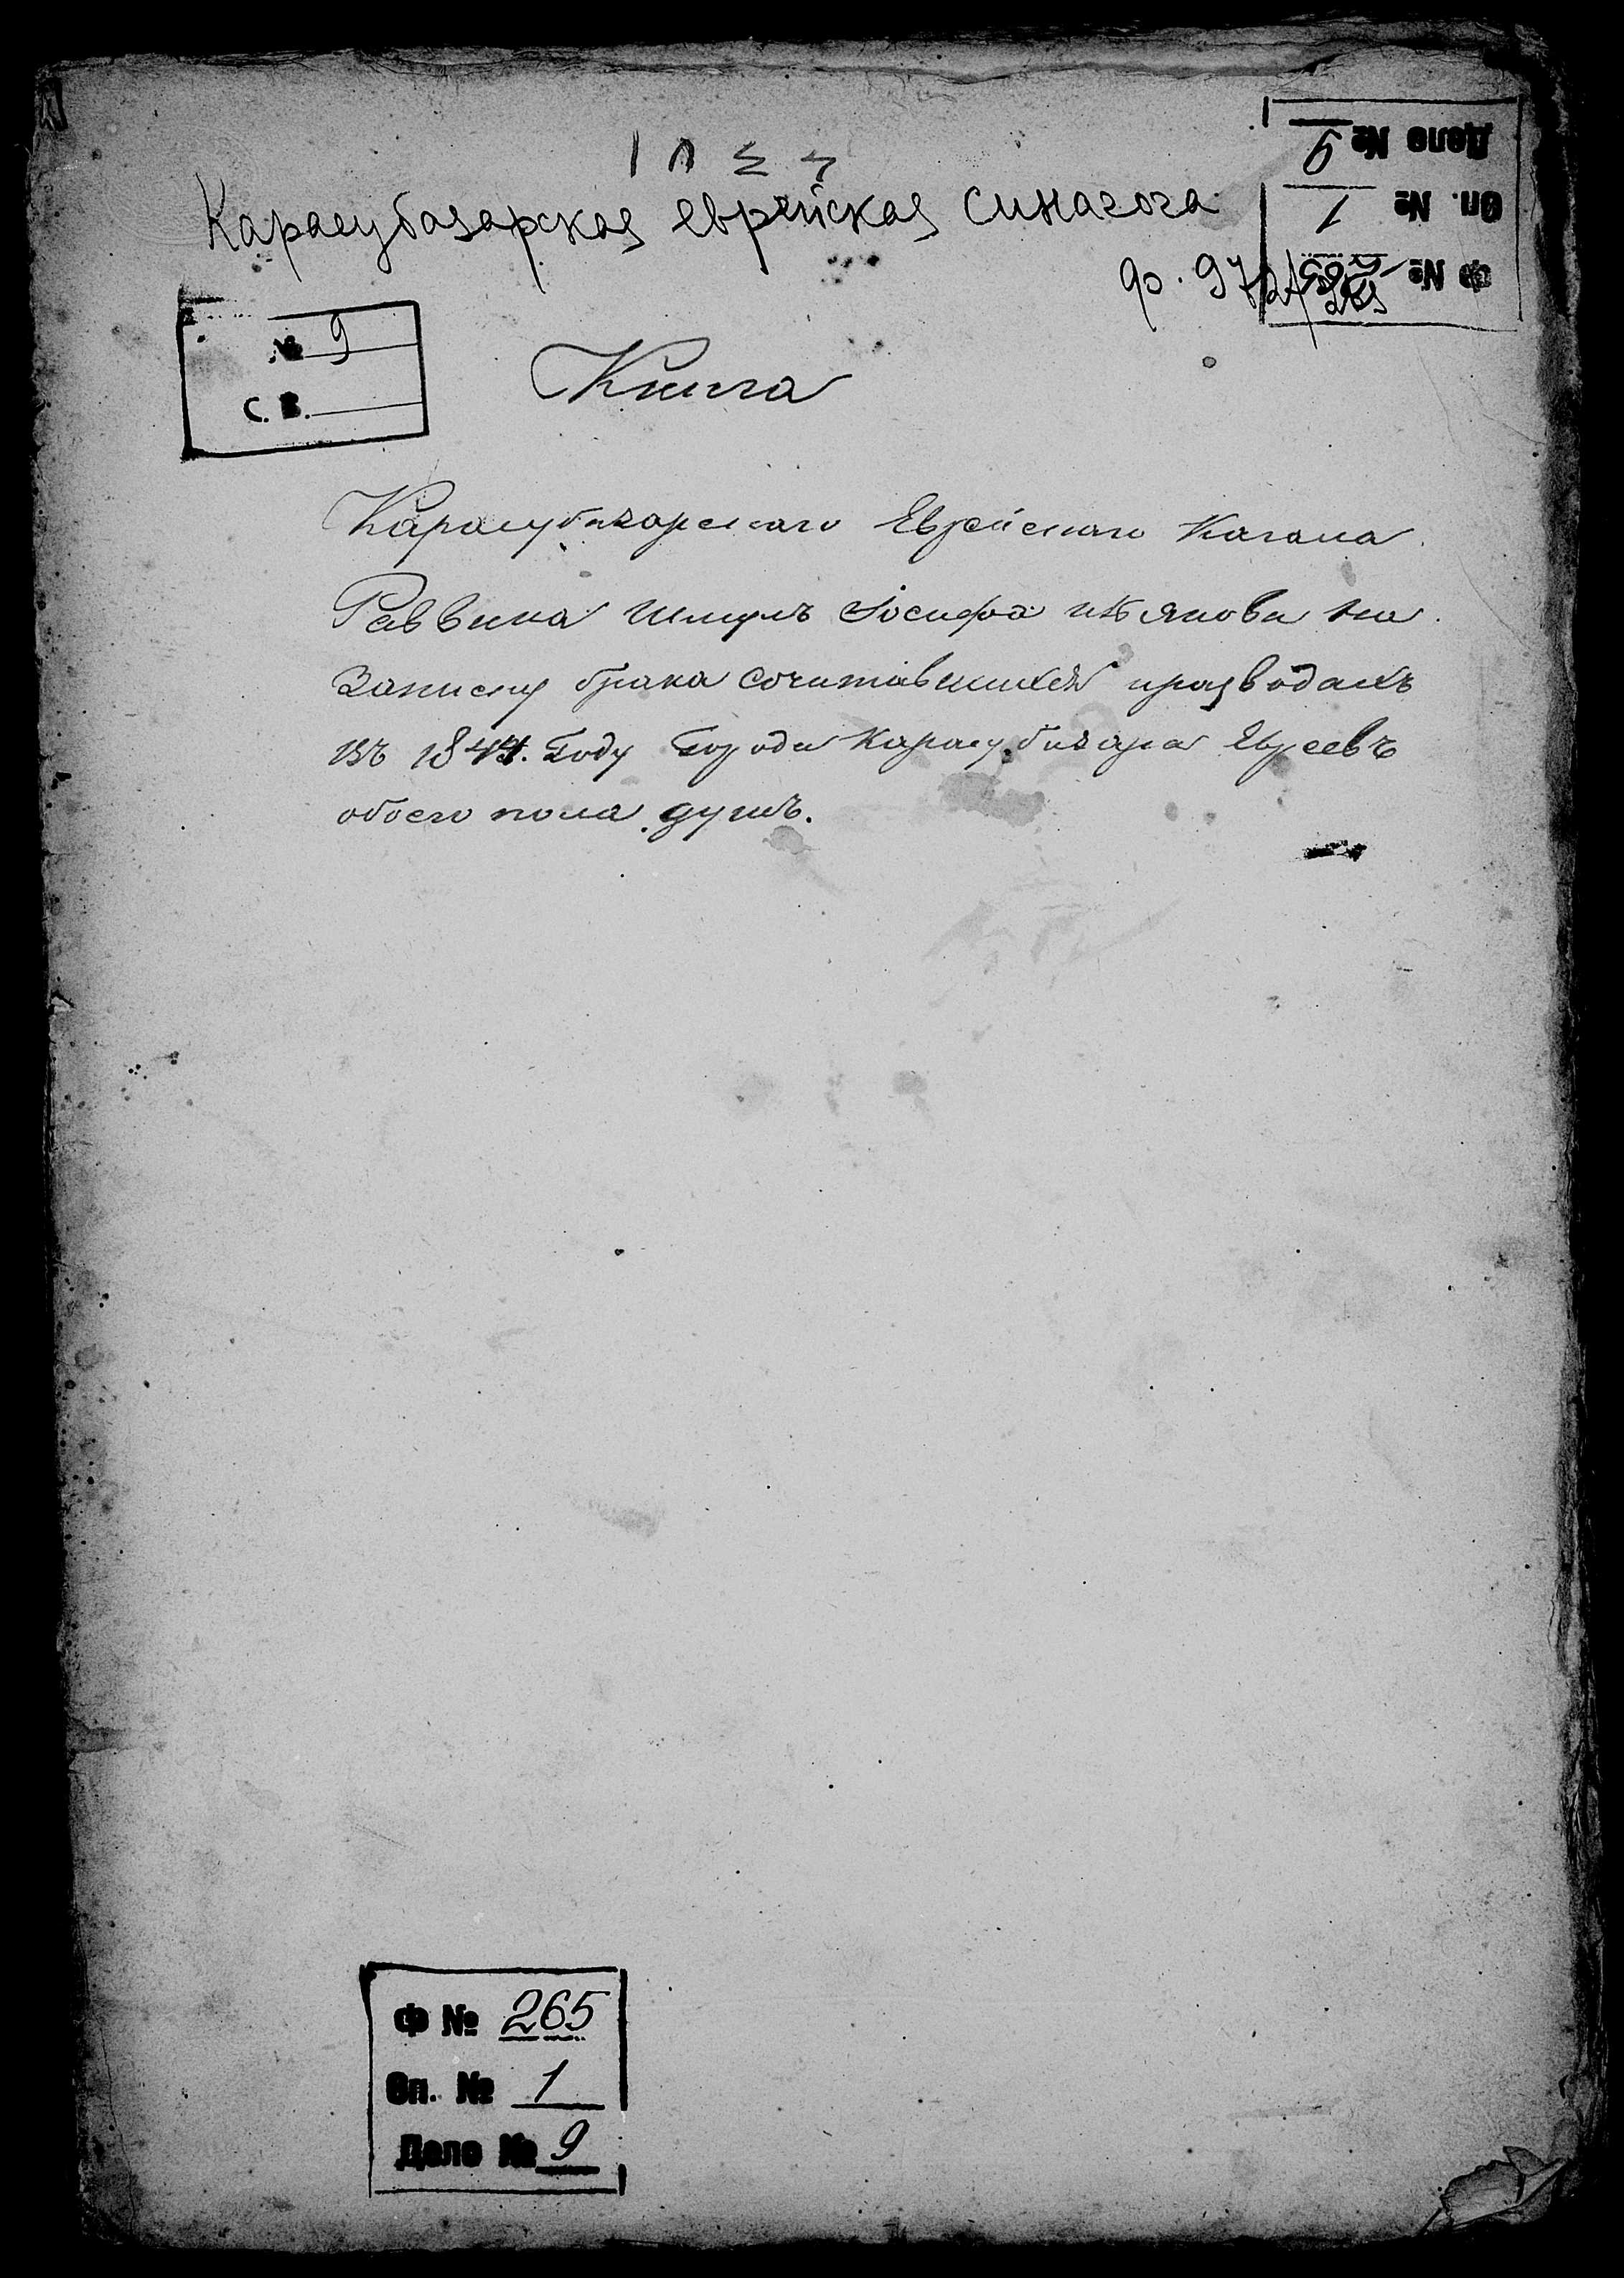 Карасубазарская еврейская синагога
Дело № 9
Оп. № 1
Ф №
ф. 972
№ 9
С. В.
Книга
Карасубазарскаго Еврейскаго Кагала
Раввина Шмуль Іосифа на
записку брака сочитавшихся
въ 1844. Году Города Карасубазара Евреевъ
обоего пола душъ.
Ф № 265
Оп. № 1
Дело № 9